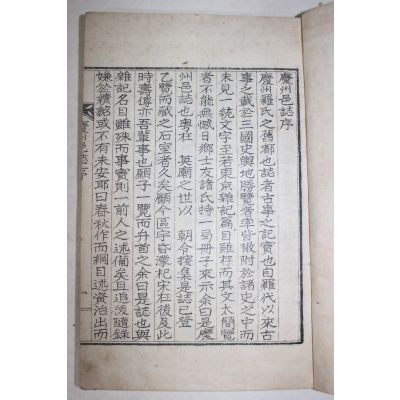 慶州邑誌序
慶州羅氏之舊都也誌者古事之記實也自羅代以來古
事之載於三國史輿地勝覽者率皆散附於諸史之中而
未見一統文字至若東京雜記篇目雖存而其文太簡覽
者不能無憾日鄉士友諸氏持一局冊子來示余曰是慶
州邑誌也粵在 英廟之世以 朝令按集是誌已登
乙覽而藏之石室者久矣顧今區宇昏濛杞宋在後及此
時壽傳亦吾輩事也願子一覽而弁首之余曰是誌也與
雜記名目雖殊而事實則一前人之述備矣且追後隨錄
嫌於續貂或不有未安耶曰春秋作而綱目述資治出而
慶州邑誌序
一